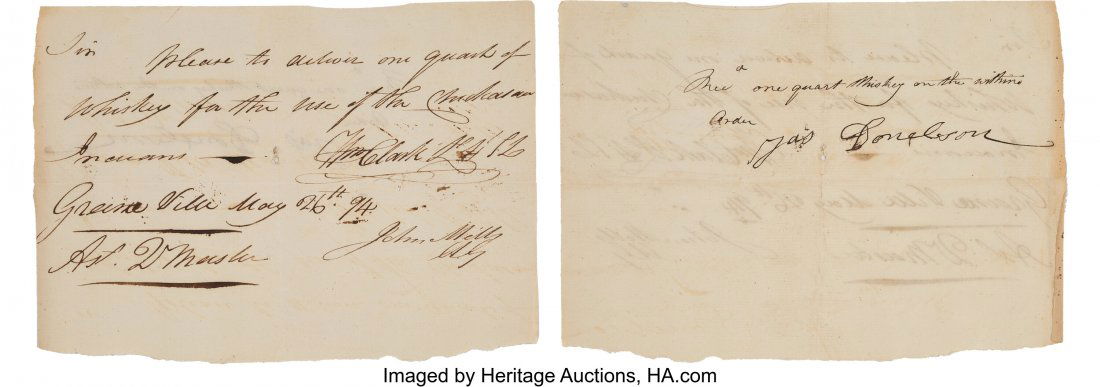 Sir
Please to deliver one quart of
Whiskey for the use of the Chickasaw
Indians — Wm Clark Lt 4th SL
Greene Ville May 26th 94
John Mills
Ast. Dr Master
Recd one quart Whiskey on the within
Order
Jas Donelson
Imaged by Heritage Auctions, HA.com